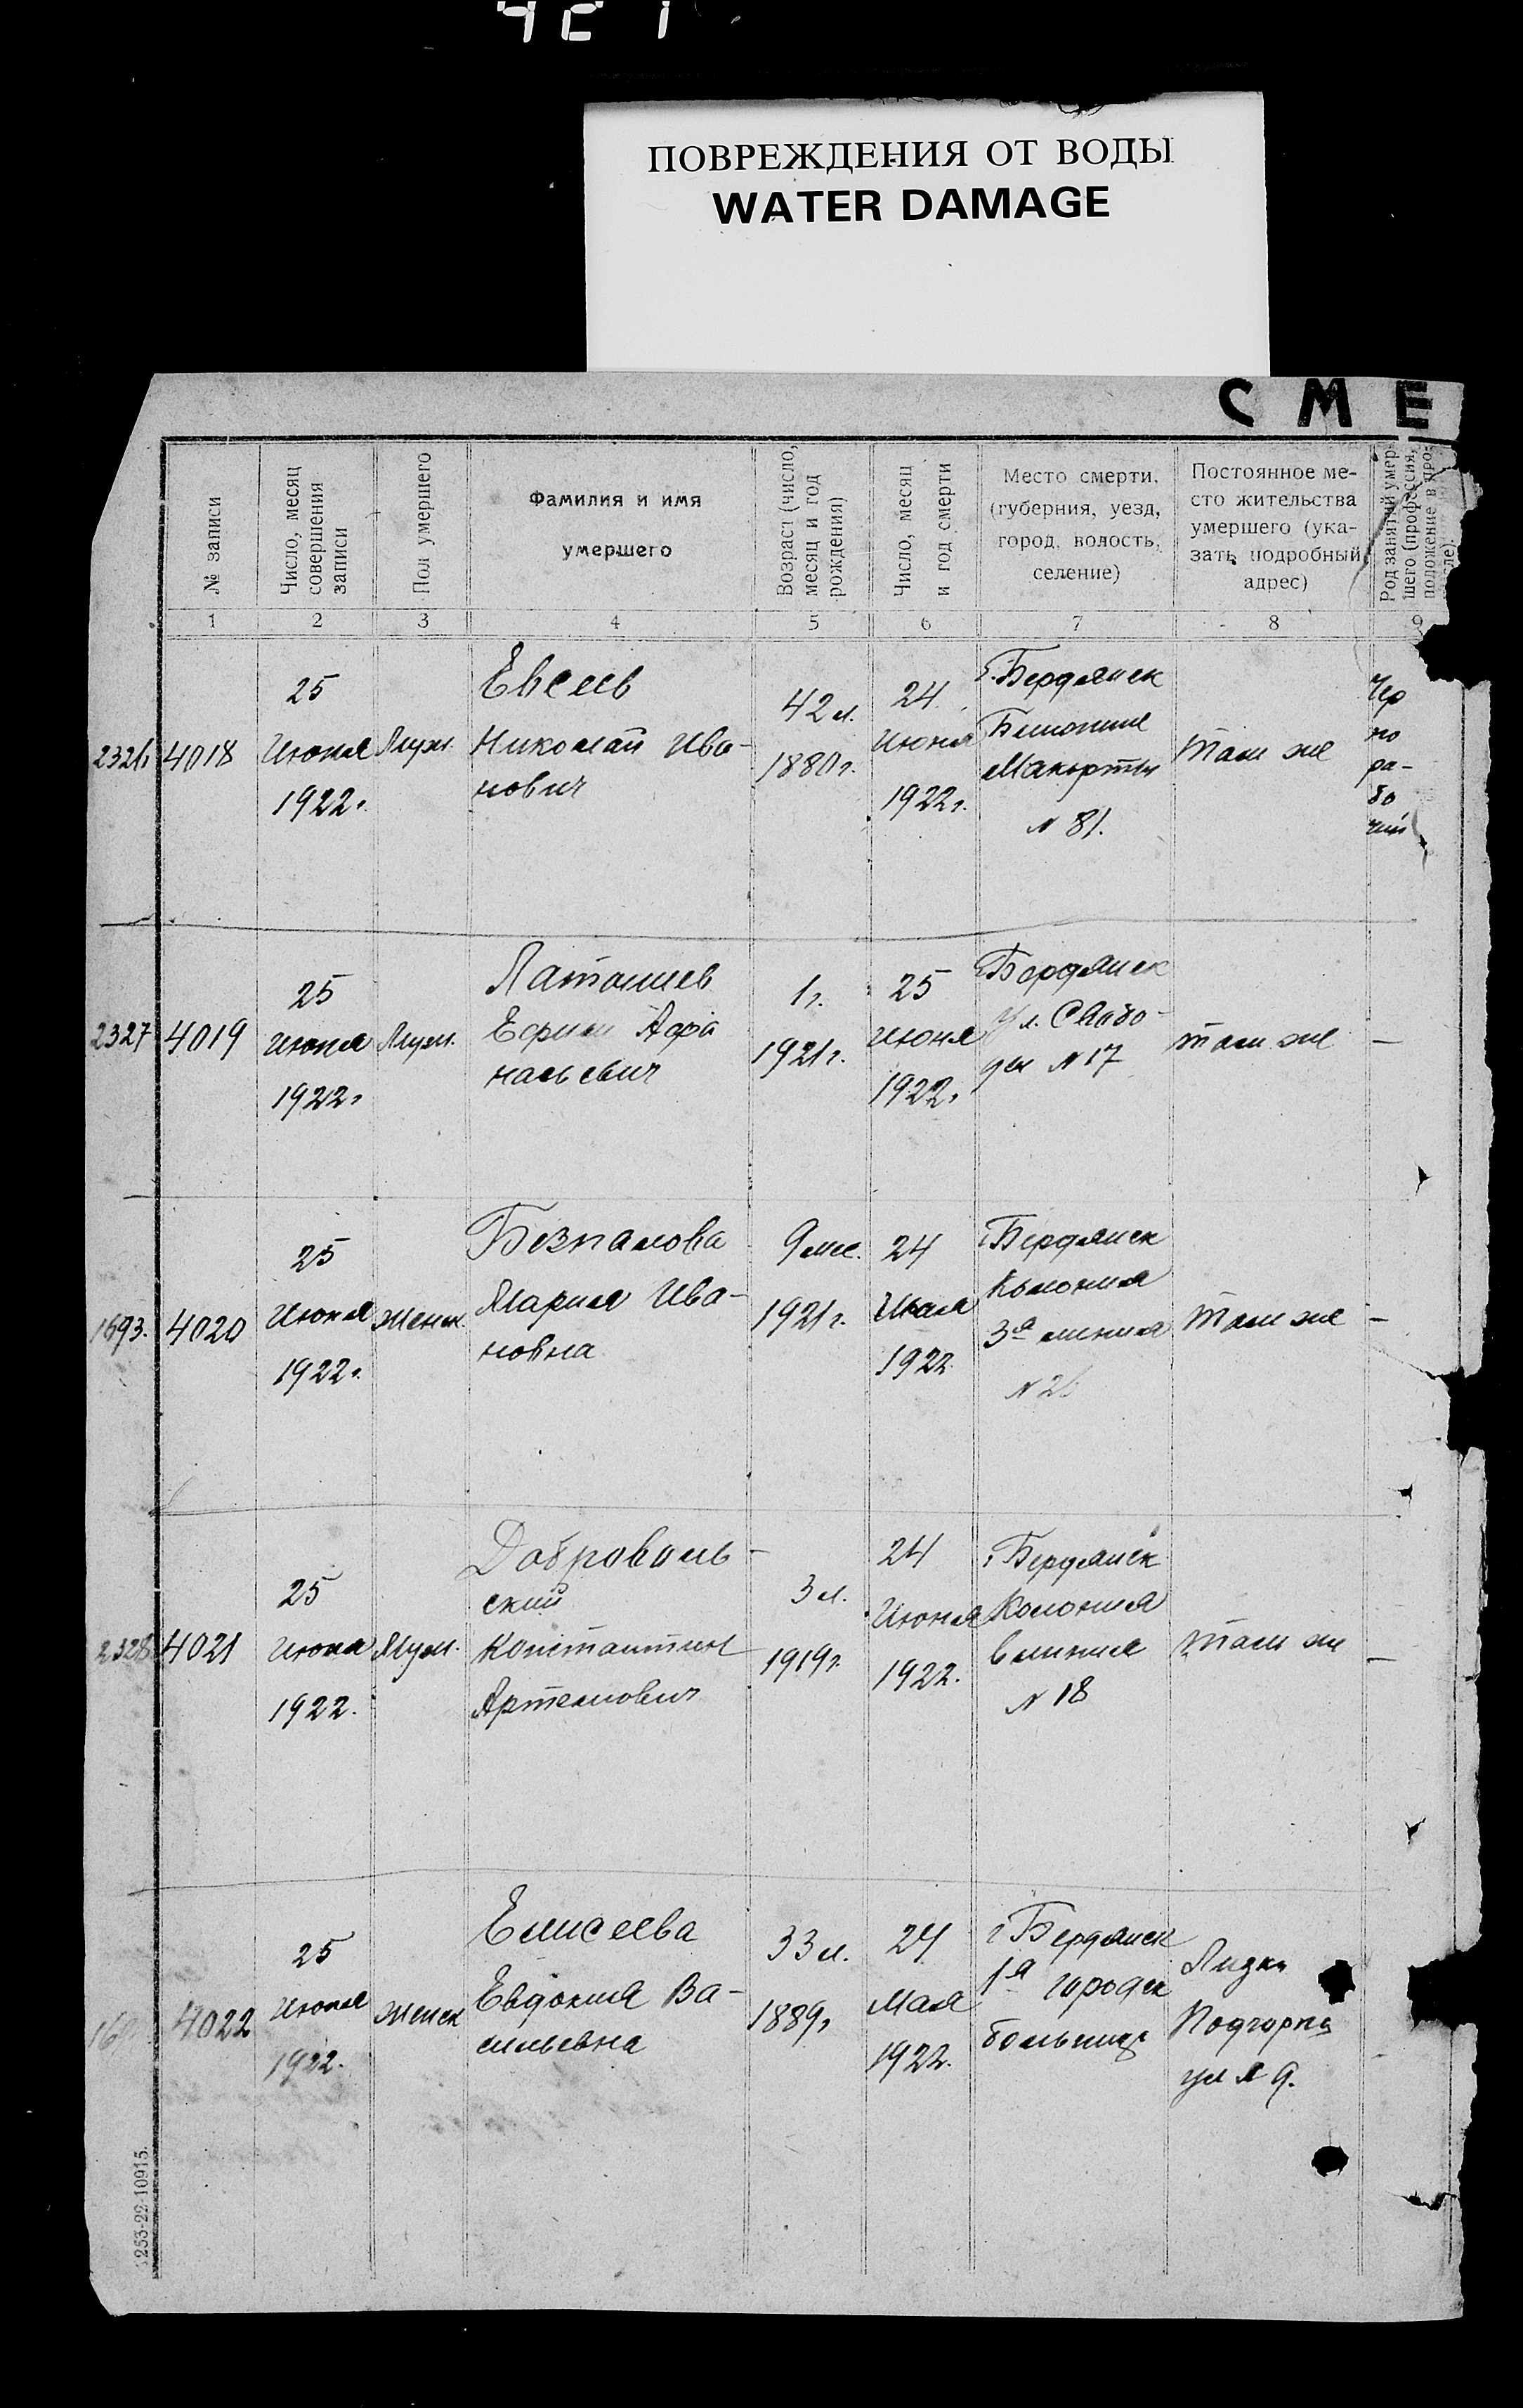 ПОВРЕЖДЕНИЯ ОТ ВОДЫ
WATER DAMAGE
СМЕ
№ записи
Число, месяц
совершения
записи
Пол умершего
Фамилия и имя
умершего
Возраст (число,
месяц и год
рождения)
Число, месяц
и год смерти
Место смерти,
(губерния, уезд,
город, волость,
селение)
Постоянное ме-
сто жительства
умершего (ука-
зать подробный
адрес)
Род занятий умер-
шего (профессия,
положение в про-
1 2 3 4 5 6 7 8 9
4018
25
Июня
1922г.
Муж.
Евсеев
Николай Ива-
нович
42 л.
1880г.
24
Июня
1922г.
г. Бердянск
N 81.
там же
Чер
но
ра-
бо
чий
2327
4019
25
Июня
1922г
Муж.
Ефим Афа
насьевич
1г.
1921г.
25
Июня
1922г
г Бердянск
ул. Свобо-
ды N 17
там же
—
1693.
4020
25
Июня
1922г.
Женск.
Безпалова
Мария Ива-
новна
9 мес.
1921г.
24
1922
г Бердянск
Колония
3я линия
там же
—
2328
4021
25
Июня
1922.
Муж.
Доброволь-
ский
Константин
Артемович
3 л.
1919г.
24
Июня
1922.
г Бердянск
Колония
линия
N 18
там же
—
4022
25
Июня
1922.
Женск
Елисеева
Евдокия Ва-
сильевна
33 л.
1889г
24
Мая
1922.
г Бердянск
1я городск
больница
ул N 9.
1253-22-10915.